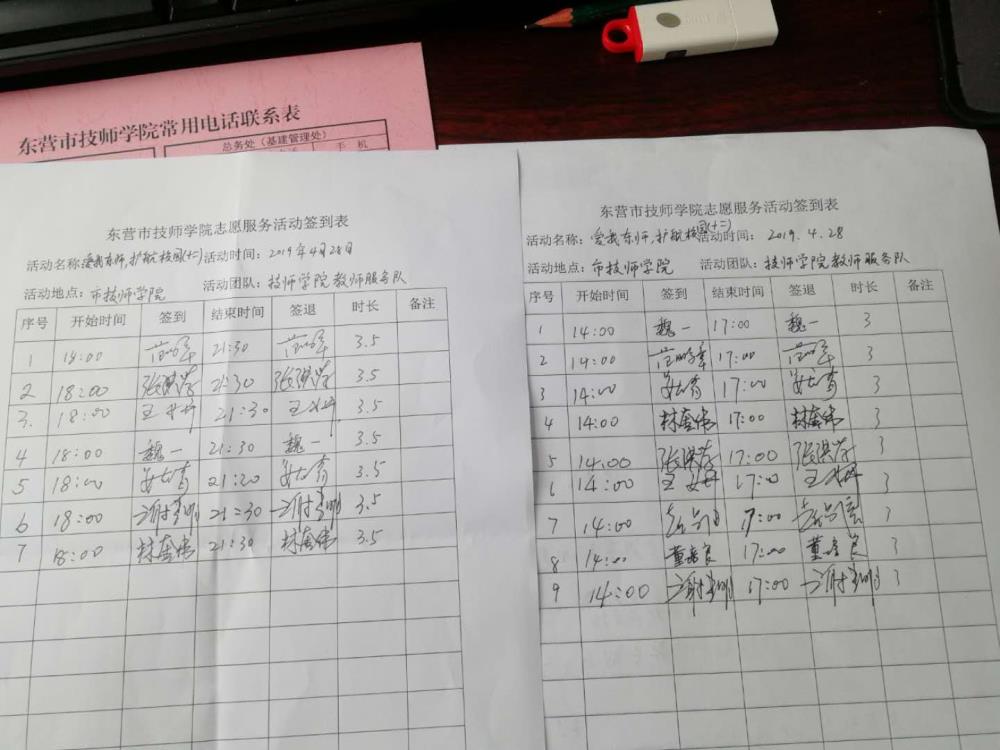 东营市技师学院常用电话联系表
总务处（基建管理处）
手 机
东营市技师学院志愿服务活动签到表
活动名称:爱我东师,护航校园(十二) 活动时间：2019年4月28日
活动地点：市技师学院 活动团队：技师学院教师服务队
序号 开始时间 签到 结束时间 签退 时长 备注
1 18:00 21:30 3.5
2 18:00 张洪芹 21:30 张洪芹 3.5
3. 18:00 21:30 3.5
4 18:00 魏一 21:30 魏一 3.5
5 18:00 21:30 3.5
6 18:00 谢 21:30 谢 3.5
7 18:00 林奎伟 21:30 林奎伟 3.5
东营市技师学院志愿服务活动签到表
活动名称：爱我东师,护航校园(十二) 活动时间：2019.4.28
活动地点：市技师学院 活动团队：技师学院教师服务队
序号 开始时间 签到 结束时间 签退 时长 备注
1 14:00 魏一 17:00 魏一 3
2 14:00 17:00 3
3 14:00 17:00 3
4 14:00 林奎伟 17:00 林奎伟 3
5 14:00 张洪芹 17:00 张洪芹 3
6 14:00 17:00 3
7 14:00 17:00 3
8 14:00 17:00 3
9 14:00 谢 17:00 谢 3